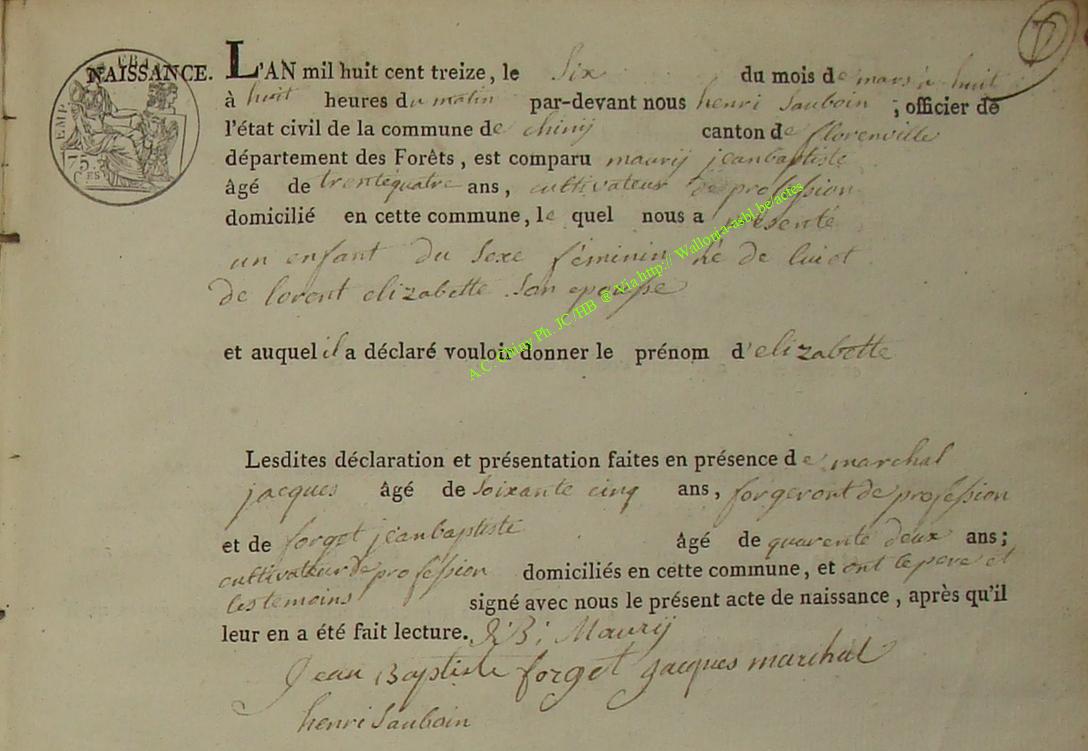 NAISSANCE.
EMP. FRA
75.
C.ES
L'AN mil huit cent treize, le Six du mois de mars à huit
à huit heures du matin par-devant nous henri Sauboin, officier de
l'état civil de la commune de chinij canton de florenville
département des Forêts, est comparu maurij jeanbaptiste
âgé de trentequatre ans, cultivateur de profession
domicilié en cette commune, le quel nous a présenté
un enfant du Sexe féminin né de lui et
de lorent elizabette Son epouse
et auquel il a déclaré vouloir donner le prénom d'elizabette
Lesdites déclaration et présentation faites en présence de marchal
jacques âgé de Soixante cinq ans, forgeront de profession
et de forget jeanbaptiste âgé de quarente deux ans;
cultivateur de profession domiciliés en cette commune, et ont le pere et
les temoins signé avec nous le présent acte de naissance, après qu'il
leur en a été fait lecture. J:B: Maurij
Jean Baptiste forget jacques marchal
henri Sauboin
A.C. Chiny Ph. JC /HB @ Via http:// Wallonia-asbl.be/actes